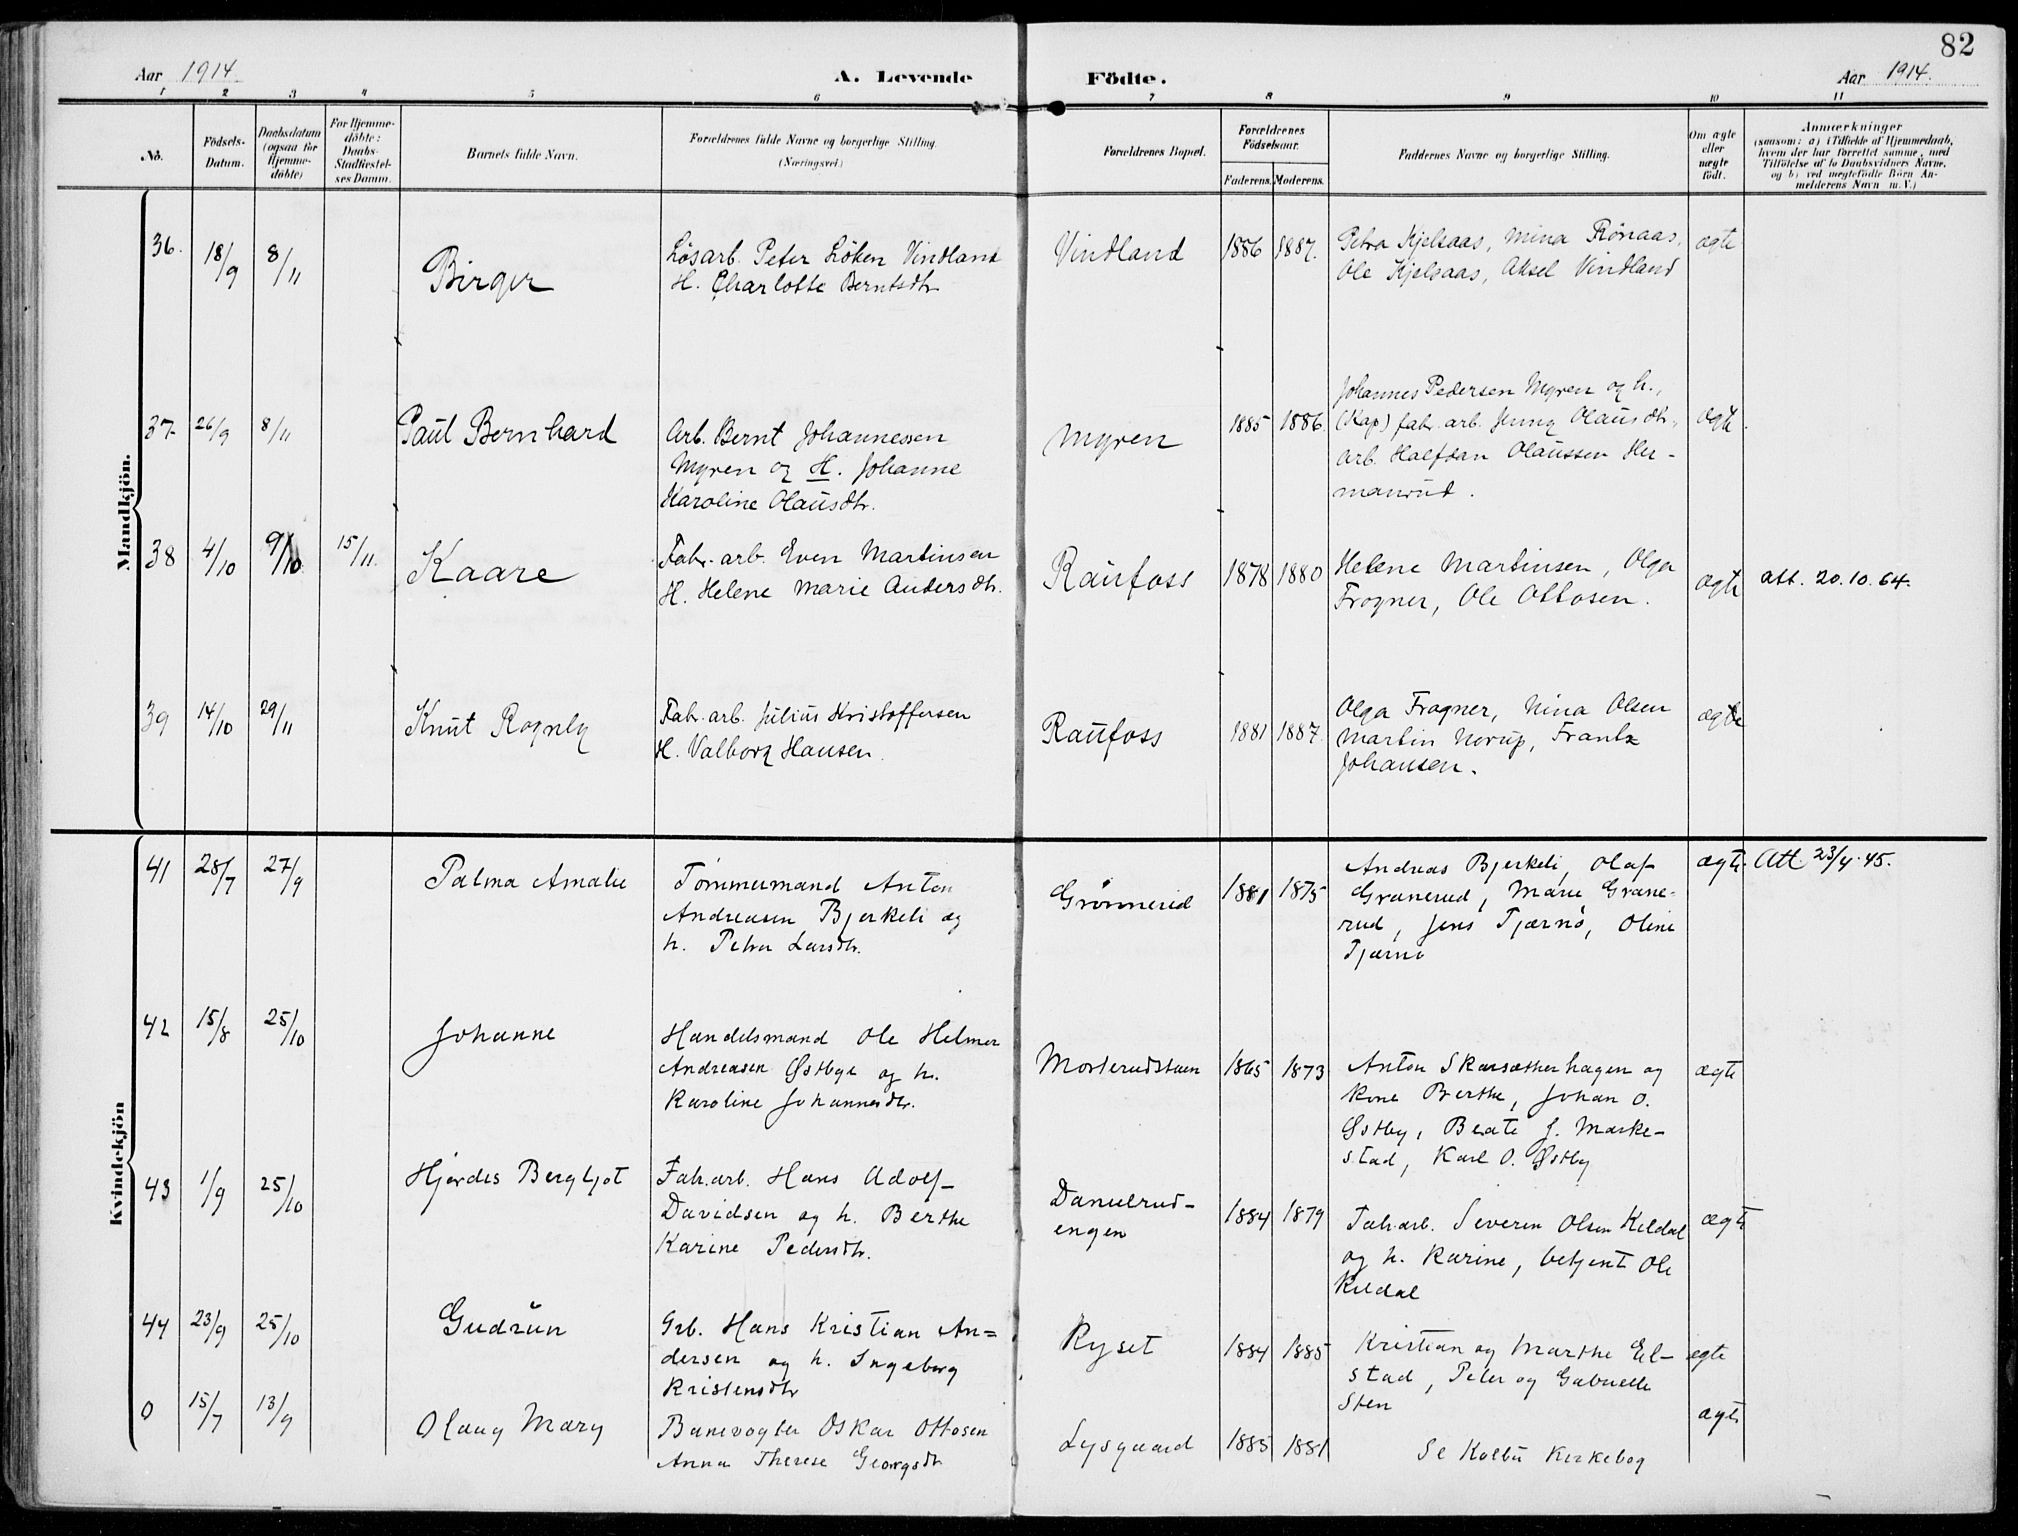 82
Aar 1914.
A. Levende Födte.
Aar 1914.
1 2 3 4 5 6 7 8 9 10 11
No.
Födsels-
Datum.
Daabsdatum
(ogsaa for
Hjemme-
döbte)
For Hjemme-
döbte:
Daabs-
Stadfæstel-
ses Datum.
Barnets fulde Navn.
Forældrenes fulde Navne og borgerlige Stilling.
(Næringsvei)
Forældrenes Bopæl.
Forældrenes
Födselsaar.
Faderens. Moderens.
Faddernes Navne og borgerlige Stilling.
Om ægte
eller
uægte
født.
Anmærkninger
(saasom: a) i Tilfælde af Hjemmedaab,
hvem der har forrettet samme, med
Tilföielse af to Daabsvidners Navne,
og b) ved uægtefödte Börn An-
melderens Navn m. V.)
Mandkjön.
36. 18/9 8/11 Birger
Løsarb. Peter Løken Vindland
H. Charlotte Berntsdtr
Vindland 1886 1887.
Petra Kjelsaas, Mina Rønaas,
Ole Kjelsaas, Aksel Vindland
ægte
37. 26/9 8/11 Paul Bernhard
Arb. Bernt Johannessen
Myren og H. Johanne
Karoline Olausdtr.
Myren 1885 1886
Johannes Pedersen Myren og h.,
(Kap) fabr. arb. Jenny Olausdtr.,
arb. Halfdan Olaussen Her-
manrud.
ægte
38 4/10 9/10 15/11 Kaare
Fabr. arb. Even Martinsen
H. Helene Marie Andersdtr.
Raufoss 1878 1880
Helene Martinsen, Olga
Frogner, Ole Ottosen.
ægte att. 20.10.64.
39 14/10 29/11 Knut Rognly
Fabr. arb. Julius Kristoffersen
H. Valborg Hansen.
Raufoss 1881 1887.
Olga Frogner, Nina Olsen
Martin Norup, Frantz
Johansen.
ægte
Kvindekjön
41 28/7 27/9 Palma Amalie
Tømmermand Anton
Andreasen Bjerkeli og
h. Petra Larsdtr.
Grønnerud 1881 1875
Andreas Bjerkeli, Olaf
Granerud, Marie Grane-
rud, Jens Tjærnø, Oline
Tjærnø
ægte. Att. 23/4.45.
42 15/8 25/10 Johanne
Handelsmand Ole Helmer
Andreasen Østbye og h.
Karoline Johannesdtr.
Morterudstuen 1865 1873
Anton Skarsætherhagen og
kone Berthe, Johan O.
Østby, Beate J. Marke-
stad, Karl O. Østby
ægte
43 1/9 25/10 Hjørdis Bergljot
Fab.arb. Hans Adolf
Davidsen og h. Berthe
Karine Pedersdtr.
Danielrud-
engen 1884 1879
Fab.arb. Severin Olsen Kildal
og h. Karine, betjent Ole
Kildal
ægte
44 23/9 25/10 Gudrun
Grb. Hans Kristian An=
dersen og h. Ingeborg
Kristensdtr
Ryset 1884 1885
Kristian og Marthe Eil-
stad, Peter og Gabrielle
Sten
ægte
0 15/7 13/9 Olaug Mary
Banevogter Oskar Ottosen
Anna Therese Georgsdtr
Lysgaard 1885 1881
Se Kolbu Kirkebog
ægte